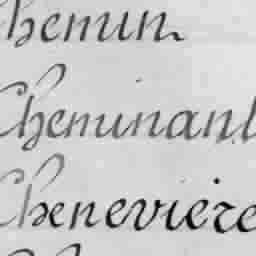 Chemin
Cheminant
Chenevière